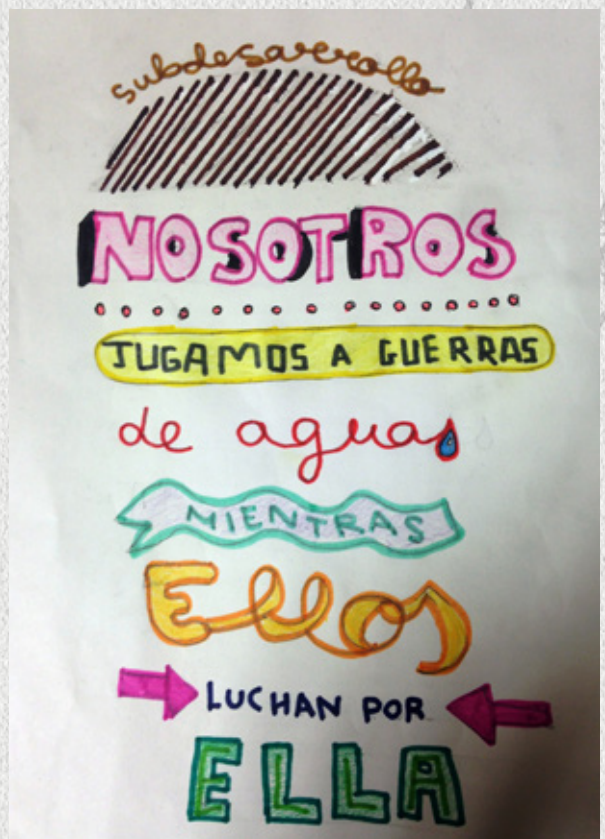 subdesarrollo
NOSOTROS
JUGAMOS A GUERRAS
de aguas
MIENTRAS
Ellos
LUCHAN POR
ELLA